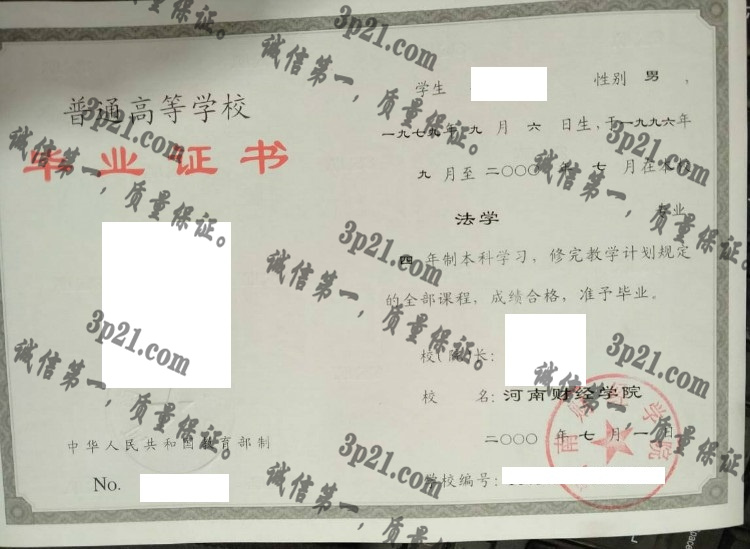 普通高等学校
毕业证书
中华人民共和国教育部制
No.
学生 性别 男 ，
一九七九年 九 月 六 日生，于一九九六年
九 月至 二〇〇〇 年 七 月在本校
法学 专业
四 年制本科学习，修完教学计划规定
的全部课程，成绩合格，准予毕业。
校（院）长：
校 名：河南财经学院
二〇〇〇 年 七 月 一 日
学校编号：
3p21.com
诚信第一，质量保证。
3p21.com
诚信第一，质量保证。
3p21.com
诚信第一，质量保证。
3p21.com
诚信第一，质量保证。
3p21.com
诚信第一，质量保证。
3p21.com
诚信第一，质量保证。
3p21.com
诚信第一，质量保证。
3p21.com
诚信第一，质量保证。